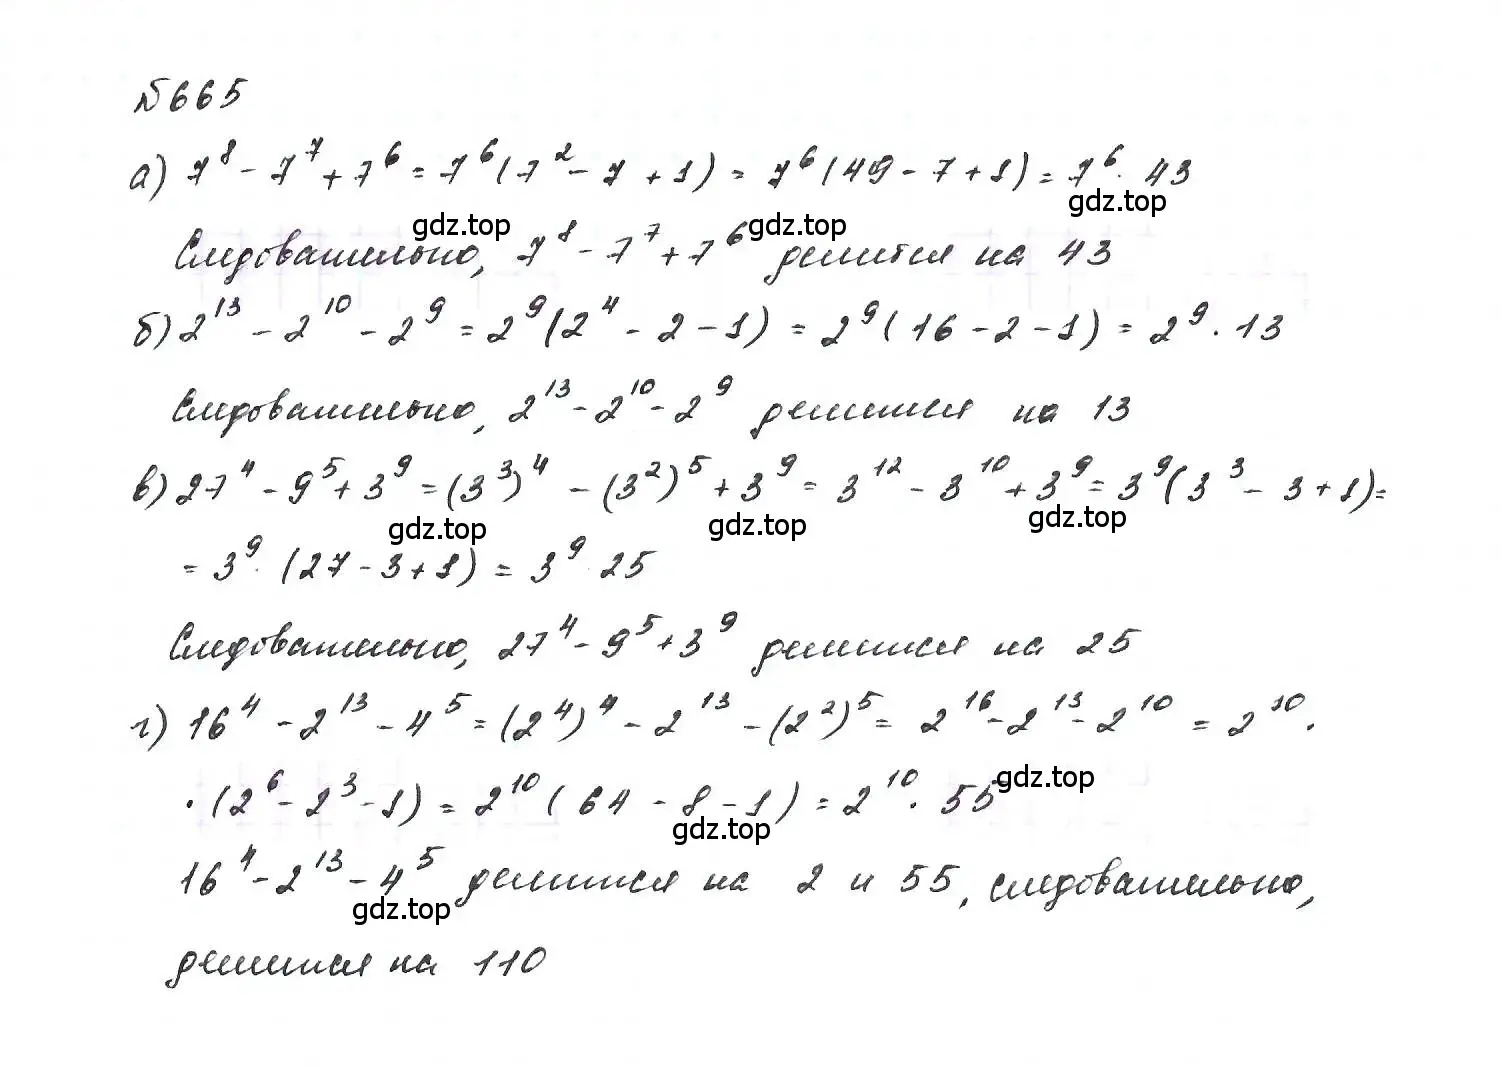 №665
а) 7⁸ - 7⁷ + 7⁶ = 7⁶(7² - 7 + 1) = 7⁶(49 - 7 + 1) = 7⁶ · 43
gdz.top gdz.top gdz.top
Следовательно, 7⁸ - 7⁷ + 7⁶ делится на 43
б) 2¹³ - 2¹⁰ - 2⁹ = 2⁹(2⁴ - 2 - 1) = 2⁹(16 - 2 - 1) = 2⁹ · 13
Следовательно, 2¹³ - 2¹⁰ - 2⁹ делится на 13
в) 27⁴ - 9⁵ + 3⁹ = (3³)⁴ - (3²)⁵ + 3⁹ = 3¹² - 3¹⁰ + 3⁹ = 3⁹(3³ - 3 + 1) =
gdz.top gdz.top gdz.top
= 3⁹ · (27 - 3 + 1) = 3⁹ · 25
Следовательно, 27⁴ - 9⁵ + 3⁹ делится на 25
г) 16⁴ - 2¹³ - 4⁵ = (2⁴)⁴ - 2¹³ - (2²)⁵ = 2¹⁶ - 2¹³ - 2¹⁰ = 2¹⁰ ·
· (2⁶ - 2³ - 1) = 2¹⁰(64 - 8 - 1) = 2¹⁰ · 55 gdz.top
gdz.top
16⁴ - 2¹³ - 4⁵ делится на 2 и 55, следовательно,
gdz.top
делится на 110